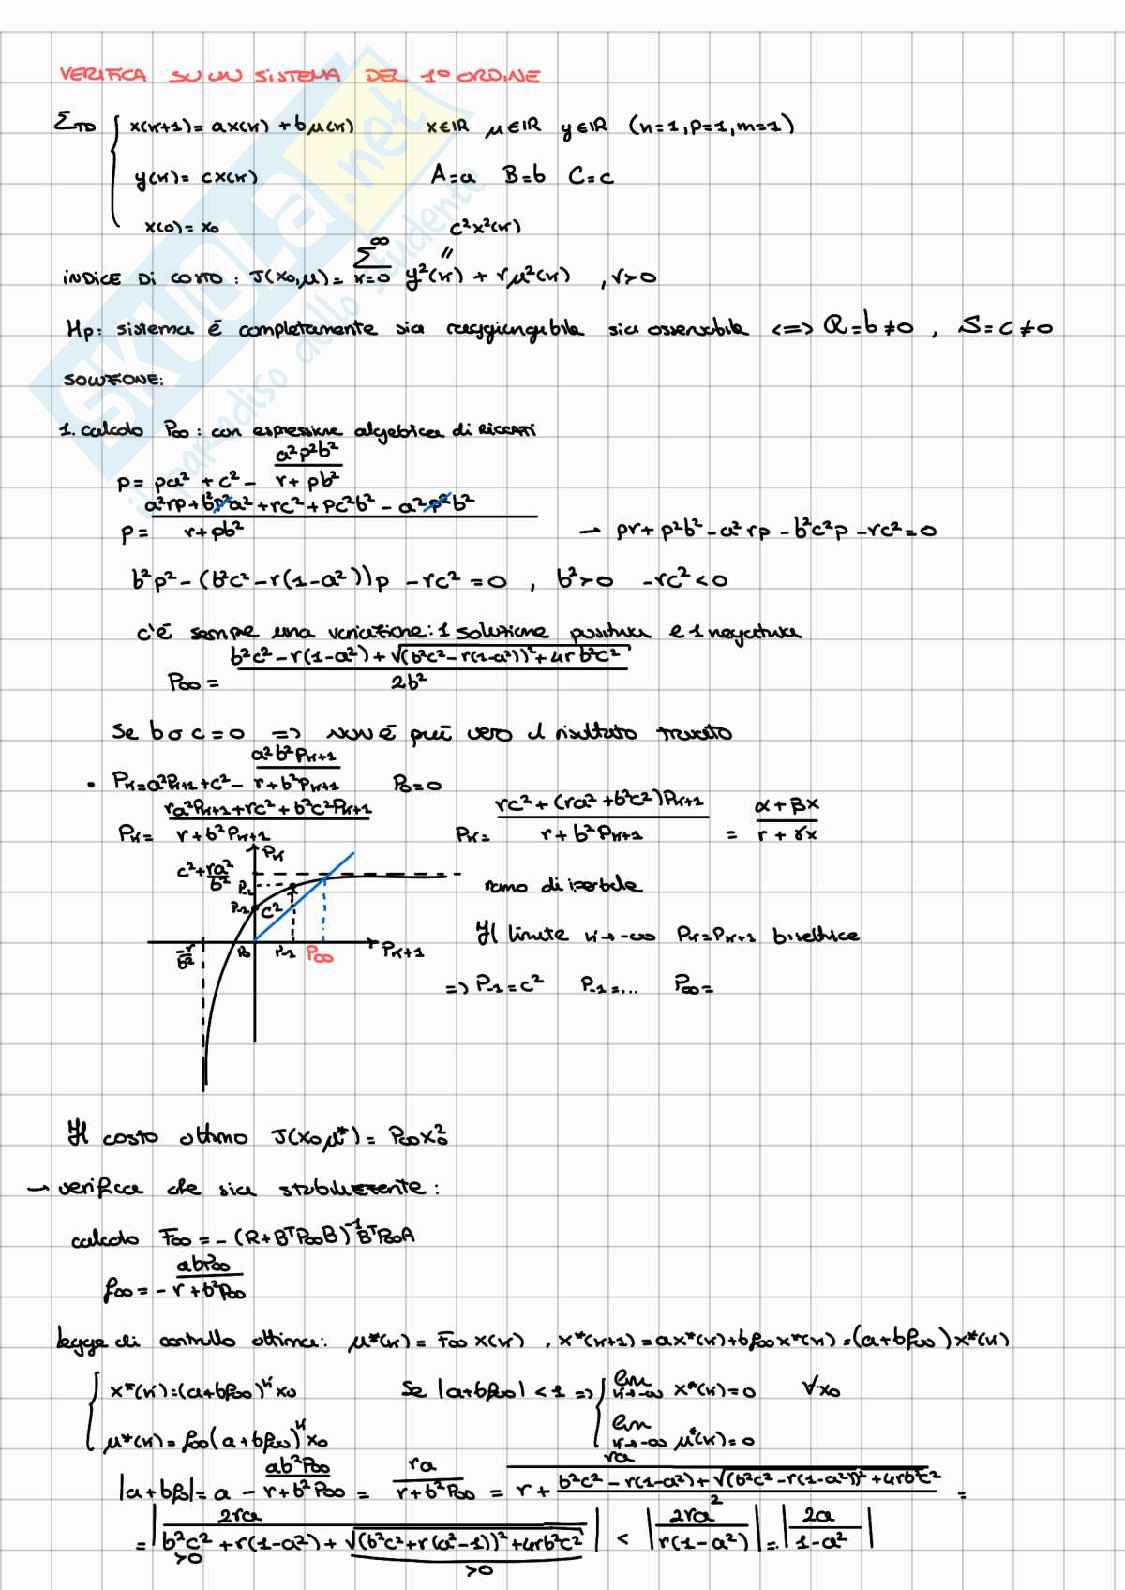 VERIFICA SU UN SISTEMA DEL 1° ORDINE
Σ_TD { x(k+1) = ax(k) + bμ(k)    x∈ℝ μ∈ℝ y∈ℝ (n=1, p=1, m=1)
y(k) = cx(k)    A=a B=b C=c
x(0) = x₀
INDICE DI COSTO: J(x₀,μ) = Σ_{k=0}^∞ y²(k) + rμ²(k) , r>0
c²x²(k)
"
Hp: sistema è completamente sia raggiungibile sia osservabile <=> R=b≠0 , S=c≠0
SOLUZIONE:
1. calcolo P∞: con espressione algebrica di RICCATI
p = pa² + c² - a²p²b²/(r+pb²)
p = (a²rp + b²p²a² + rc² + pc²b² - a²p²b²)/(r+pb²) → pr + p²b² - a²rp - b²c²p - rc² = 0
b²p² - (b²c² - r(1-a²))p - rc² = 0 , b²>0 -rc²<0
c'è sempre una variazione: 1 soluzione positiva e 1 negativa
P∞ = (b²c² - r(1-a²) + √((b²c² - r(1-a²))² + 4rb²c²))/2b²
Se b o c=0 => NON è più vero il risultato trovato
• Pk = a²Pk+1 + c² - a²b²Pk+1/(r+b²Pk+1)    P₀=0
Pk = (ra²Pk+1 + rc² + b²c²Pk+1)/(r+b²Pk+1)    Pk = (rc² + (ra²+b²c²)Pk+1)/(r+b²Pk+1) = (α+βx)/(r+γx)
Pk
c²+ra²/b²
P-2
P-1
c²
-r/b²
P₀
P-1
P∞
Pk+1
ramo di iperbole
Il limite k→-∞ Pk=Pk+1 bisettrice
=> P-1=c² P-1=... P∞=
Il costo ottimo J(x₀,μ*) = P∞x₀²
→ verifica che sia stabilizzante:
calcolo F∞ = -(R+BᵀP∞B)⁻¹BᵀP∞A
f∞ = - abP∞/(r+b²P∞)
legge di controllo ottima: μ*(k) = F∞x(k) , x*(k+1) = ax*(k) + bf∞x*(k) = (a+bf∞)x*(k)
{ x*(k) = (a+bf∞)ᵏx₀    Se |a+bf∞| < 1 => { lim k→∞ x*(k)=0 ∀x₀
μ*(k) = f∞(a+bf∞)ᵏx₀    lim k→∞ μ*(k)=0
|a+bf∞| = a - ab²P∞/(r+b²P∞) = ra/(r+b²P∞) = ra/(r + (b²c² - r(1-a²) + √((b²c² - r(1-a²))² + 4rb²c²))/2) =
= |2ra/(b²c² + r(1-a²) + √((b²c² + r(a²-1))² + 4rb²c²))| < |2ra/(r(1-a²))| = |2a/(1-a²)|
>0
>0
SKUOLA.net
il paradiso dello studente